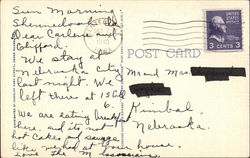 Sun Morning
Shenandoah
Dear Carlene and
Clifford.
We stay at
Nebraska City
last night. We
left there at 15
6.
we are eating breakfast
here, and its not
hot Cakes and sausage
like we had at your house.
Love The M
POST CARD
3 CENTS 3
Mr and Mrs
Kimbal
Nebraska.